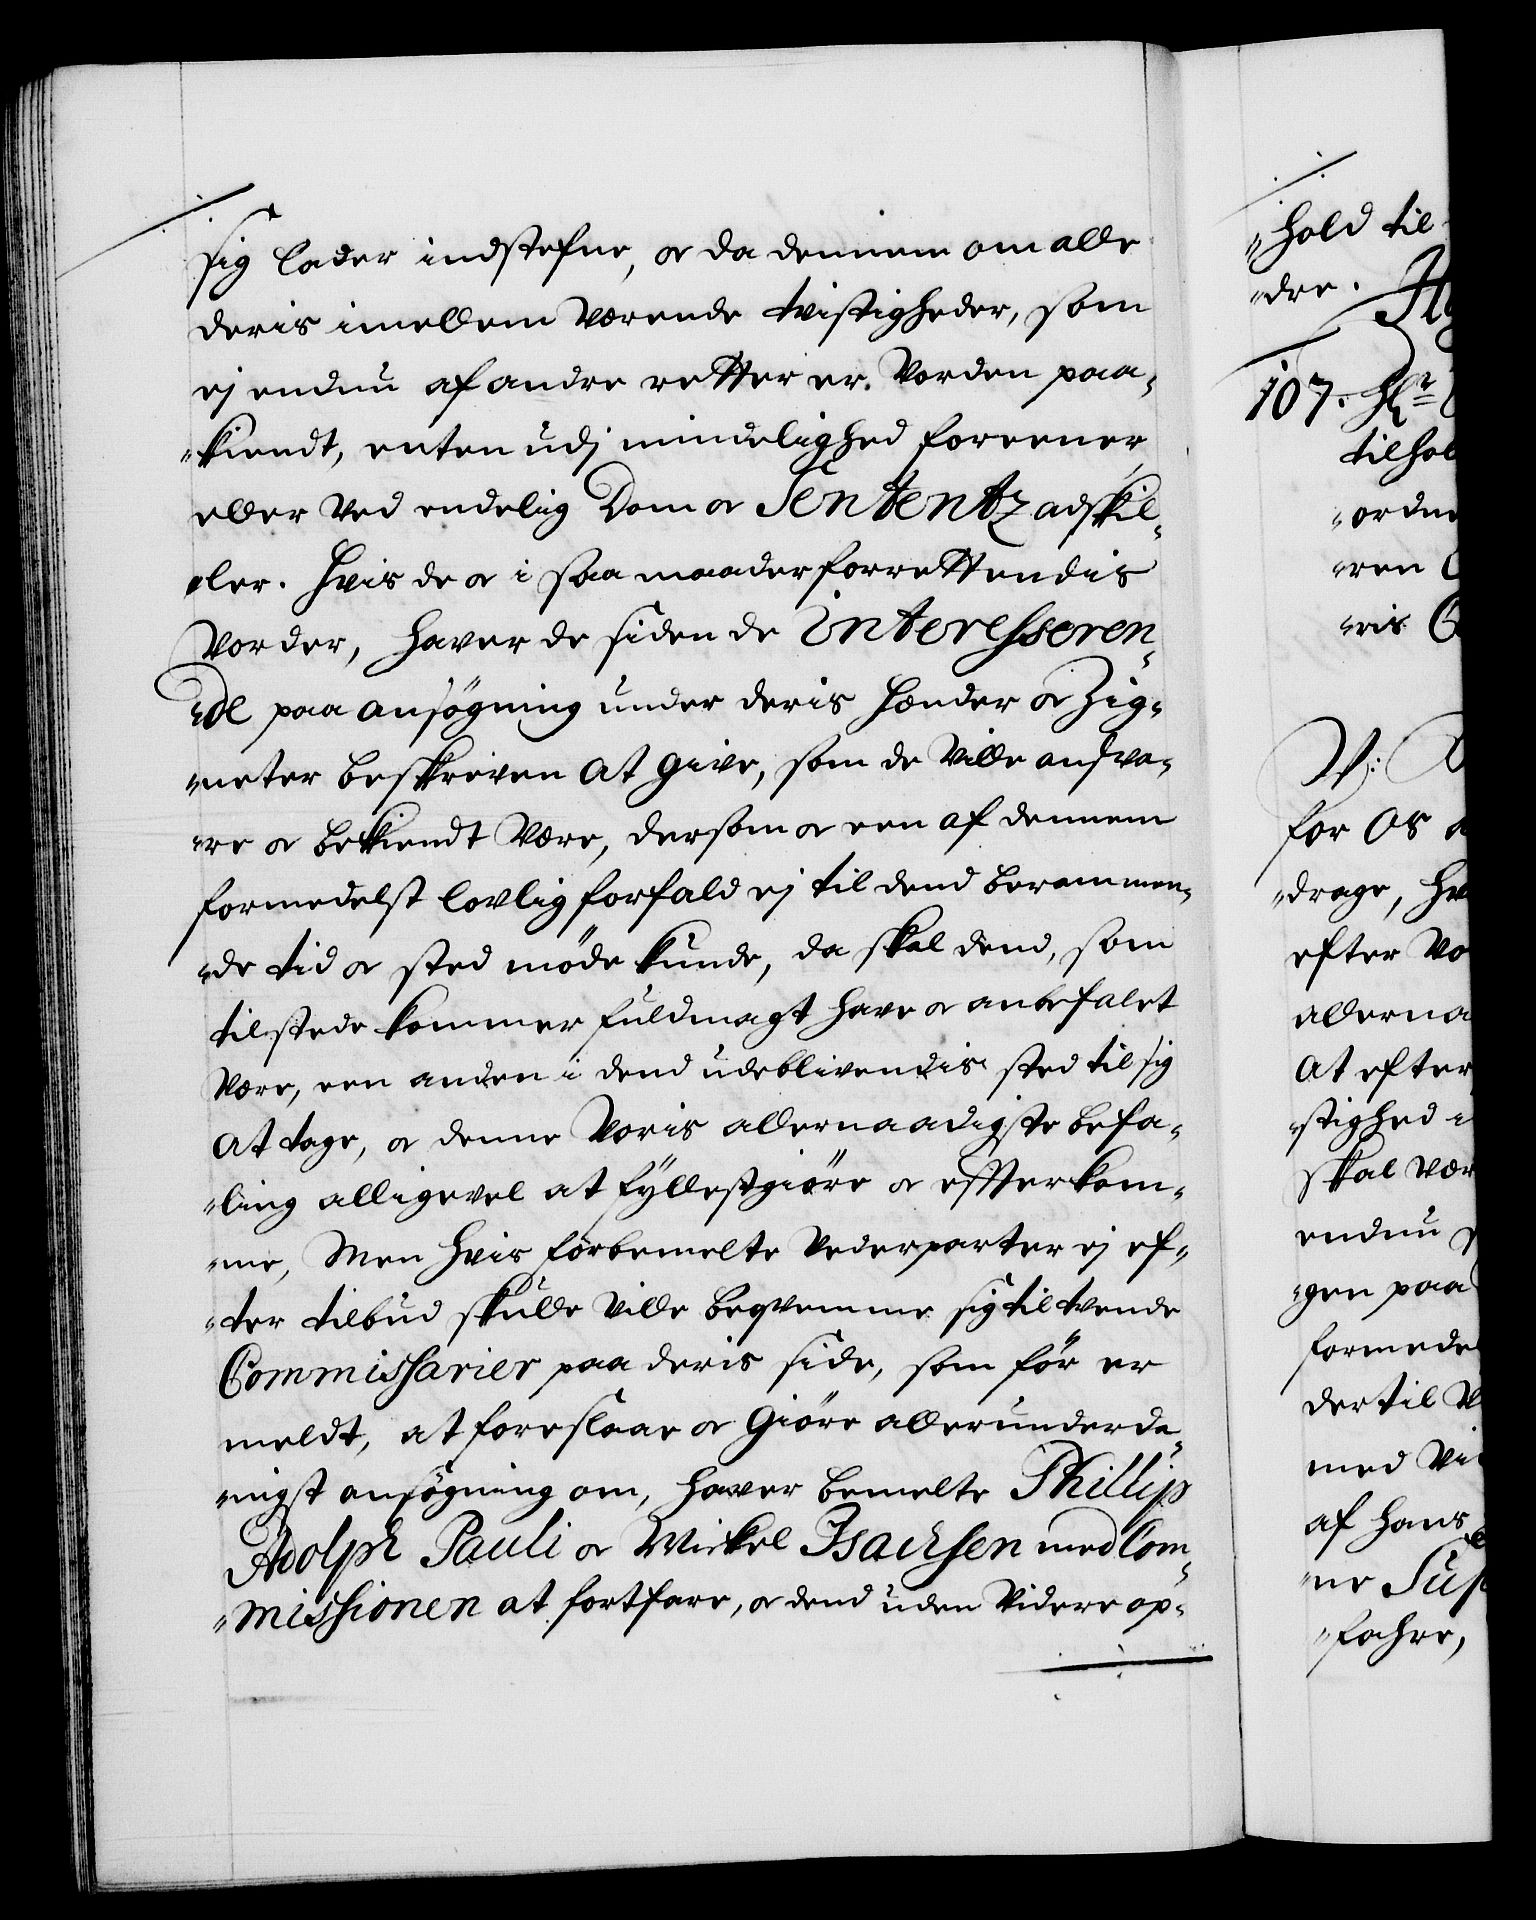 sig lader indstefne, og da dennem om alle
deris imellem værende tvistigheder, som
ej endnu af andre retter er vorden paa-
"kiendt, enten udj mindelighed foreener
eller ved endelig Dom og Sententz adskil-
"ler. Hvis de og i saa maader forrettendis
vorder, haver de siden de interesseren-
"de paa ansøgning under deris hænder og Zig-
"neter beskreven at give, som de ville andsva-
"re og bekiendt være, dersom og een af dennem
formedelst lovlig forfald ej til dend berammen-
"de tid og sted møde kunde, da skal dend, som
tilstede kommer fuldmagt have og anbefalet
være, een anden i dend udeblivendis sted til sig
at tage, og denne Voris allernaadigste befa-
"ling alligevel at fyllestgiøre og effterkom-
"me, Men hvis forbemelte Vederparter ej ef-
"ter tilbud skulle ville beqvemme sig til tvende
Commissarier paa deris side, som før er
meldt, at foreslaae og giøre allerunderda-
"nigst ansøgning om, haver bemelte Phillip
Adolph Pauli og Mickel Isachsen med Com-
"missionen at fortfare, og dend uden videre op-
"hold til
"dre.
107. Hr
tilhol
"ordne
"ren
"ris
V:
for Os
"drage, hv
efter Vo
allerna
at efter
"stighed i
skal vær
endnu
"gen paa
formedel
dertil V
med Vi
af hans
"ne Sup
"fahre,